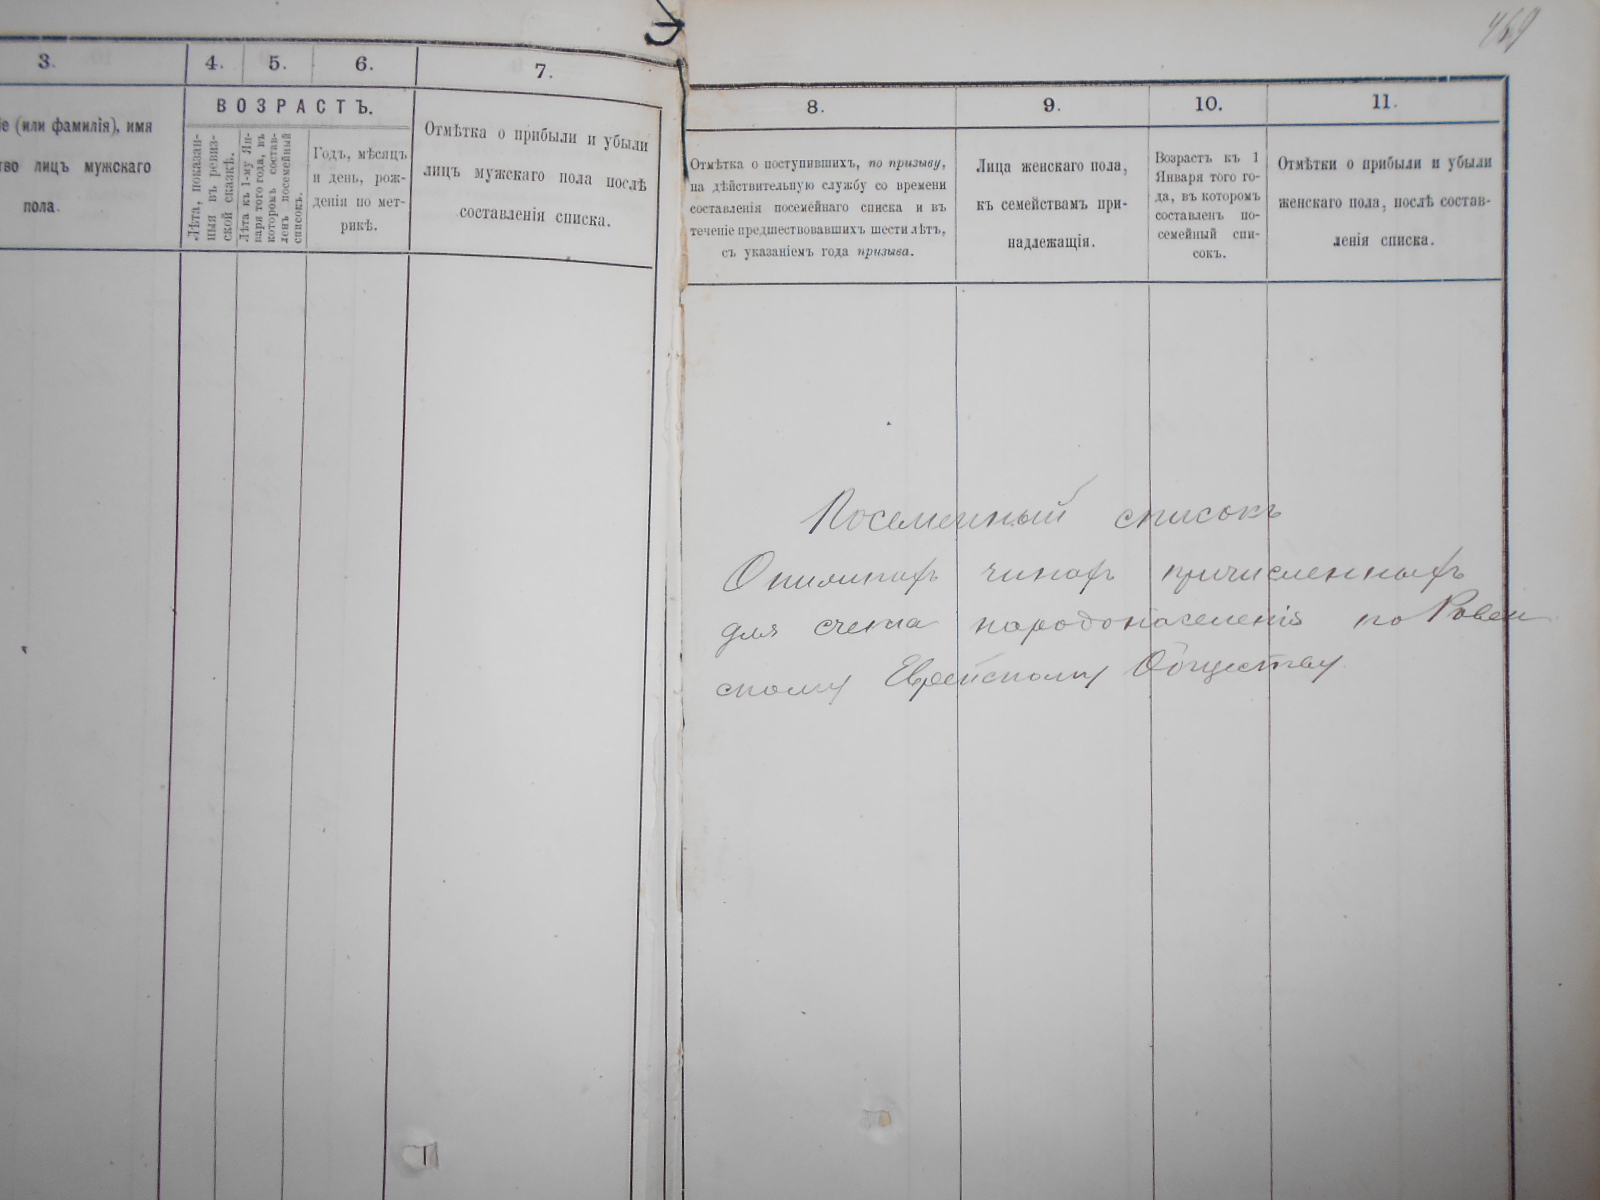 3.
4.
5.
6.
7.
іе (или фамилія), имя
тво лицъ мужскаго
пола.
ВОЗРАСТЪ.
Лѣта, показан-
ныя въ ревиз-
ской сказкѣ.
Лѣта къ 1-му Ян-
варя того года, въ
которомъ состав-
ленъ посемейный
списокъ.
Годъ, мѣсяцъ
и день, рож-
денія по мет-
рикѣ.
Отмѣтка о прибыли и убыли
лицъ мужскаго пола послѣ
составленія списка.
469
8.
9.
10.
11.
Отмѣтка о поступившихъ, по призыву,
на дѣйствительную службу со времени
составленія посемейнаго списка и въ
теченіе предшествовавшихъ шести лѣтъ,
съ указаніемъ года призыва.
Лица женскаго пола,
къ семействамъ при-
надлежащія.
Возрастъ къ 1
Января того го-
да, въ которомъ
составленъ по-
семейный спи-
сокъ.
Отмѣтки о прибыли и убыли
женскаго пола, послѣ состав-
ленія списка.
Посемейный списокъ
чиновъ причисленныхъ
для счета народонаселенія по Ровен
скому Еврейскому Обществу